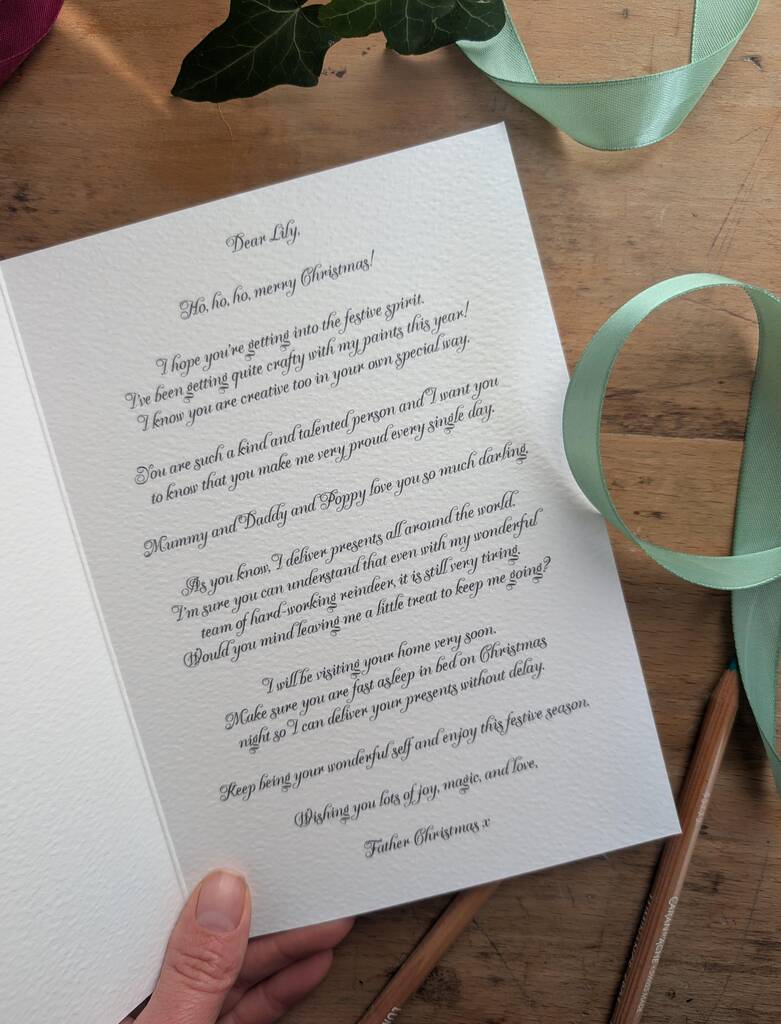 Dear Lily,
Ho, ho, ho, merry Christmas!
I hope you're getting into the festive spirit.
I've been getting quite crafty with my paints this year!
I know you are creative too in your own special way.
You are such a kind and talented person and I want you
to know that you make me very proud every single day.
Mummy and Daddy and Poppy love you so much darling.
As you know, I deliver presents all around the world.
I'm sure you can understand that even with my wonderful
team of hard-working reindeer, it is still very tiring.
Would you mind leaving me a little treat to keep me going?
I will be visiting your home very soon.
Make sure you are fast asleep in bed on Christmas
night so I can deliver your presents without delay.
Keep being your wonderful self and enjoy this festive season.
Wishing you lots of joy, magic, and love,
Father Christmas x
CARAN D'ACHE